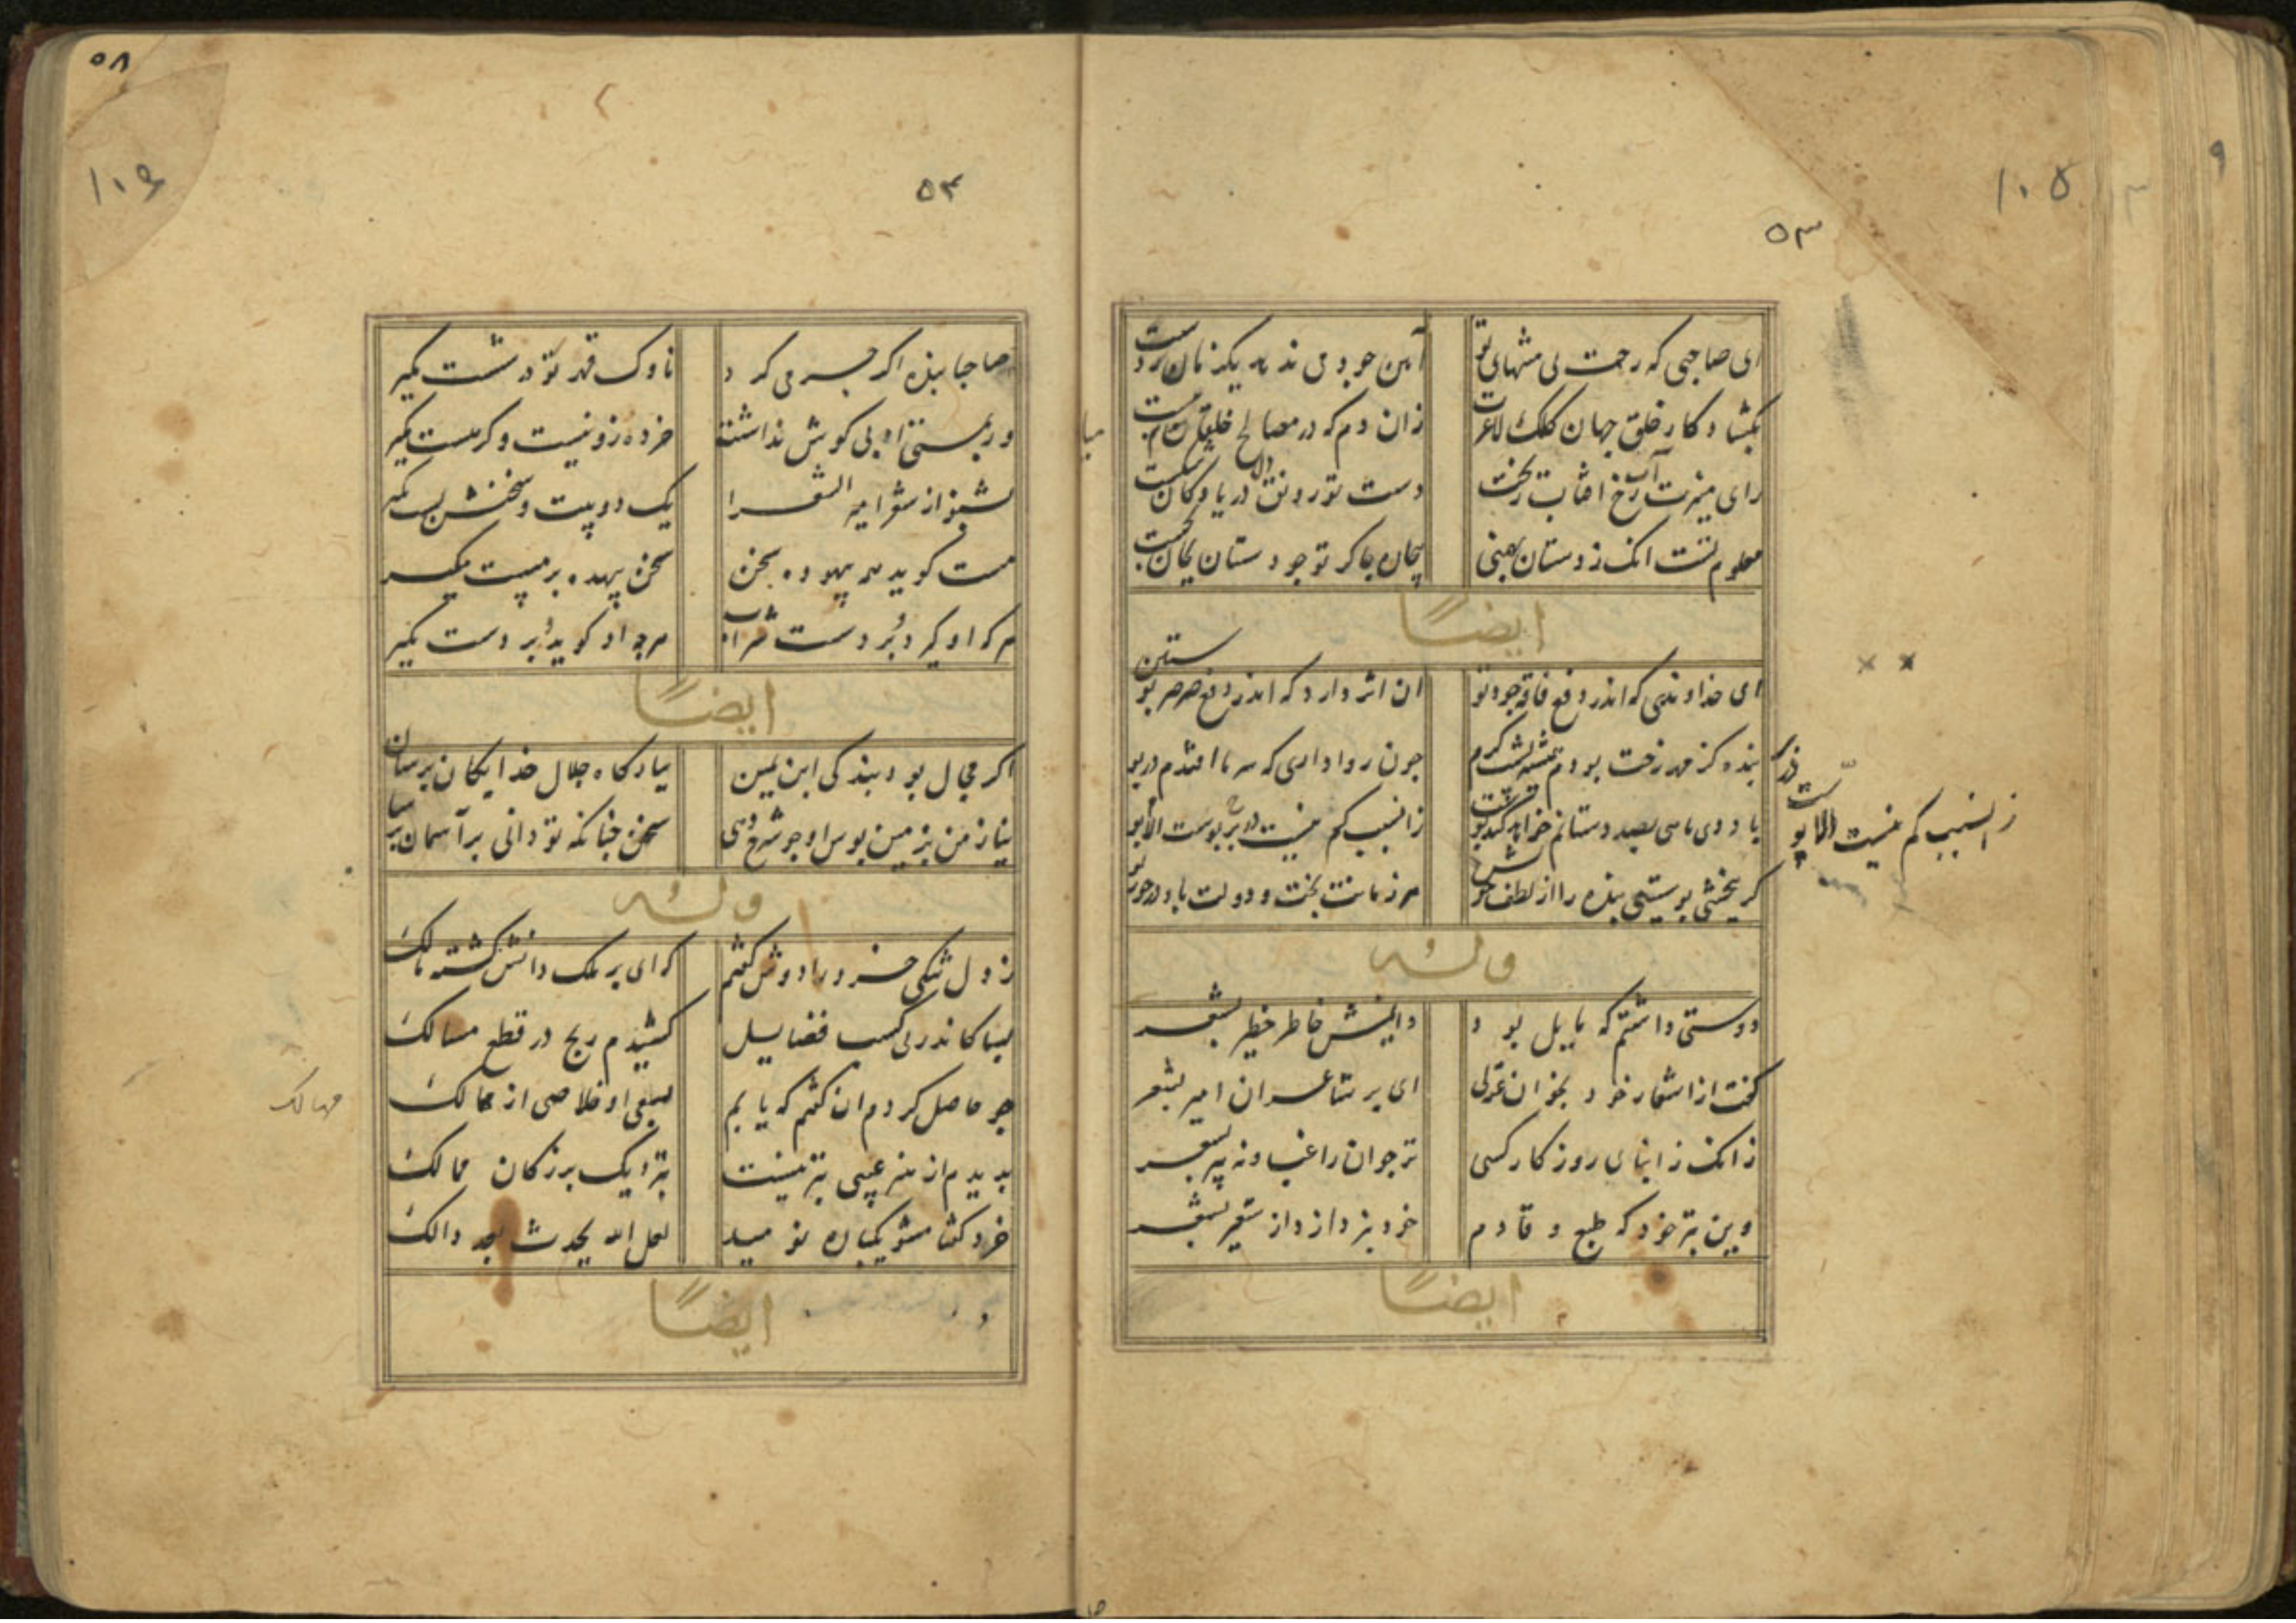 ۵۳
۱۰۵
ای صاحبی که رحمت بی منتهای تو
آیین جود می ندهد یکزمان ز دست
بکشاد کار خلق جهان کلک لاغرت
زان دم که در مصالح خلقان میان ببست
رای منیرت آب رخ افتاب ریخت
دست تو رونق دریا و کان شکست
معلوم تست انک زدستان
ایضاً
ای خداوندی که اندر دفع فاقه جود تو
ان اثر دارد که اندر دفع صرصر پوستین
بنده کز
چون روا داری که سرما افتدم در پوستین
زانسبب کم نیست در بر پوست الا پوستین
کر ببخشی پوستینی بنده را از لطف خویش
هر زمانت بخت و دولت باد
زانسبب کم نیست الا پو
وله
دوستی داشتم که مایل بود
دایمش خاطر خطیر بشعر
کفت از اشعار خود بخوان غزلی
ای بر شاعران امیر بشعر
زانک ز ابنای روزکار کسی
نز جوان راغب و نه پیر بشعر
وین بتر خود که طبع وقادم
خود نپردازد از شعیر بشعر
ایضاً
۵۸
۱۰۶
۵۴
صاحبا بنده اکر جرمی کرد
ناوک قهر تو در شست مکیر
ور بمستی ادبی کوش نداشت
خرده زو نیست وکر هست مکیر
بشنو از شعر امیر الشعرا
یک دو بیت و سخنش پست مکیر
مست کوید همه بیهوده سخن
سخن بیهده بر مست مکیر
هر که او کیرد بر دست شراب
هرچه او کوید بر دست مکیر
ایضاً
اکر مجال بود بندکی ابن یمین
ببارکاه جلال خدایکان برسان
نیاز من بزمین بوس او چو شرح دهی
سخن چنانکه تو دانی بر آسمان برسان
وله
ز دل تنکی خرد را دوش کفتم
که ای بر ملک دانش کشته مالک
بسا کاندر پی کسب فضایل
کشیدم رنج در قطع مسالک
چو حاصل کردم ان کفتم که یابم
بسعی او خلاصی از مهالک
مهالک
بدیدم از هنر عیبی بتر نیست
بنزدیک بزرکان ممالک
خرد کفتا مشو یکباره نومید
لعل الله یحدث بعد ذالک
ایضاً